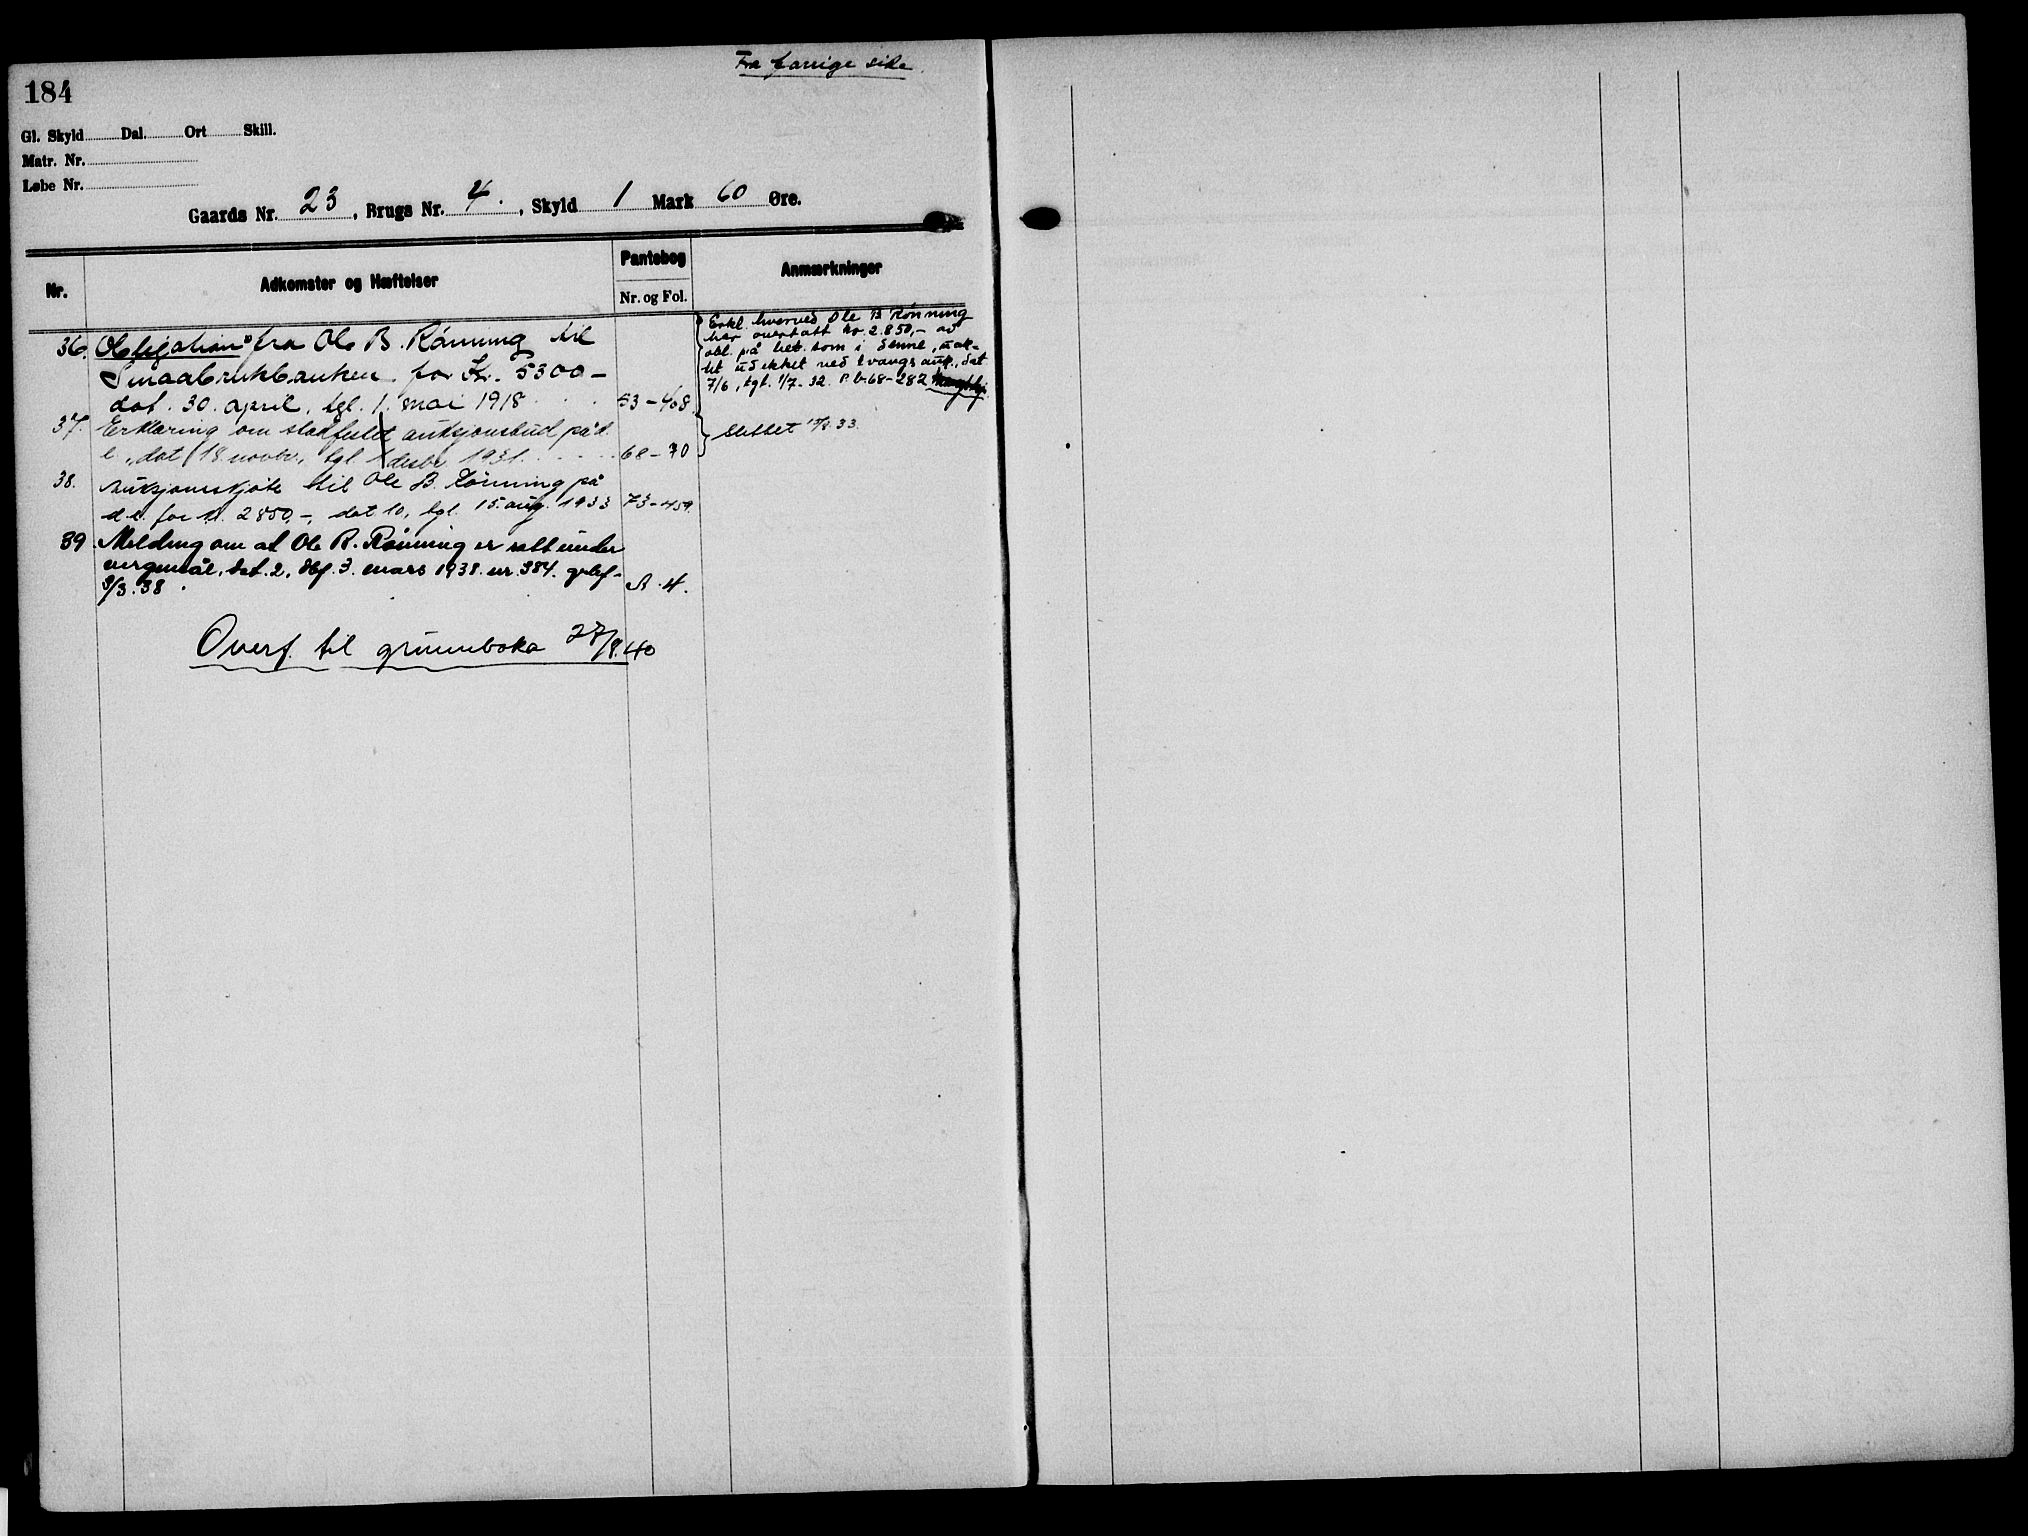 Fra forrige side
184
Gl. Skyld Dal. Ort Skill.
Matr. Nr.
Løbe Nr.
Gaards Nr. 23, Brugs Nr. 4., Skyld 1 Mark 60 Øre.
Nr. Adkomster og Hæftelser Pantebog Anmærkninger
Nr. og Fol.
36. Obligation fra Ole B. Rönning til
Smaabrukbanken for Kr. 5300 –
dat. 30. april, tgl. 1. mai 1918 . . . 53–408.
Erkl. hvorved Ole B Rønning
har overtatt kr. 2.850,– av
obl. på bet. som i denne, uak-
tet udekket ved tvangsauk., dat
7/6, tgl. 1/7–32. P.b. 68–282
37. Erklæring om stadfestet auksjonsbud på d.
e., dat. 18 novbr, tgl. 1 desbr 1931. . . . . 68–70
Slettet 15/8.33.
38. Auksjonsskjøte til Ole B. Rönning på
d.e. for kr. 2850,–, dat 10, tgl. 15. aug. 1933 73–459.
39. Melding om at Ole B. Rønning er satt under
vergemål, dat. 2, dbf. 3. mars 1938. nr. 384.
3/3.38. A.4.
Overf. til grunnboka 27/9.40